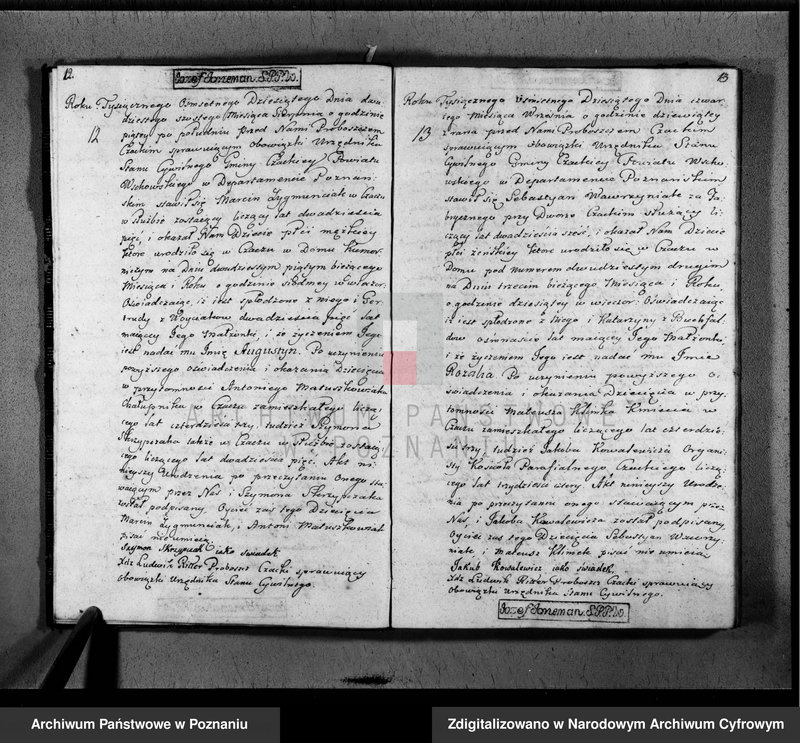 12.
Jozef Jozneman. S.P.P.W.
Roku Tysiącznego Osmsetnego Dziesiątego Dnia dwu
dziestego szóstego Miesiąca Sierpnia o godzinie
12
piątey po południu przed Nami Proboszczem
Czackim sprawuiącym obowiązki Urzędnika
Stanu Cywilnego Gminy Czackiey Powiatu
Wschowskiego w Departamencie Poznań
skim stawił się Marcin Zygmuniak w Czaczu
w służbie zostaiący liczący lat dwadzieścia
pięć, i okazał Nam Dziecie płci męzkiey
ktore urodziło się w Czaczu w Domu Komor
niczym na Dniu dwudziestym piątym bieżącego
Miesiąca i Roku o godzinie siódmey w wieczor.
Oświadczaiąc, iż iest spłodzone z niego i Ger
trudy z Woyciaków dwadzieścia pięć lat
maiącey Jego Małżonki, i że życzeniem Jego
iest nadać mu Imię Augustyn. Po uczynieniu
powyższego oświadczenia i okazania Dziecięcia
w przytomności Antoniego Matuszkowiaka
Chałupnika w Czaczu zamieszkałego liczą
cego lat czterdzieści trzy tudzież Szymona
Skrzypczaka także w Czaczu w służbie zostaią
cego liczącego lat dwadzieścia pięć. Akt ni
nieyszy Urodzenia po przeczytaniu Onego sta
waiącym przez Nas i Szymona Skrzypczaka
został podpisany. Oyciec zaś tego Dziecięcia
Marcin Zygmuniak, i Antoni Matuszkowiak
pisać nie umieią
Szymon Skrzypczak iako swiadek
Xdz Ludwik Ritter Proboszcz Czacki sprawuiący
obowiązki Urzędnika Stanu Cywilnego.
13
Roku Tysiącznego Osmsetnego Dziesiątego Dnia czwar
tego Miesiąca Września o godzinie dziewiątey
13
z rana przed Nami Proboszczem Czackim
sprawuiącym obowiązki Urzędnika Stanu
Cywilnego Gminy Czackiey Powiatu Wscho
wskiego w Departamencie Poznańskim
stawił się Sebastyan Wawrzyniak za Fa
brycznego przy Dworze Czackim służący li
czący lat dwadzieścia sześć, i okazał Nam Dziecie
płci żeńskiey ktore urodziło się w Czaczu w
Domu pod numerem dwudziestym drugim
na Dniu trzecim bieżącego Miesiąca i Roku,
o godzinie dziesiątey w wieczor. Oświadczaiąc
iż iest spłodzone z Niego i Katarzyny z Buchfal
dow osmnaście lat maiącey Jego Małżonki
i że życzeniem Jego iest nadać mu Imie
Rozalia Po uczynieniu powyższego o
świadczenia i okazania Dziecięcia w przy
tomności Mateusza Klimka Kmiecia w
Czaczu zamieszkałego liczącego lat czterdzie
ści trzy tudzież Jakuba Kowalewicza Organi
sty Kościoła Parafialnego Czackiego liczą
cego lat trzydzieści cztery. Akt ninieyszy Urodze
nia po przeczytaniu onego stawaiącym przez
Nas, i Jakuba Kowalewicza został podpisany
Oyciec zaś tego Dziecięcia Sebastyan Wawrzy
niak i Mateusz Klimek pisać nie umieią
Jakub Kowalewicz iako swiadek,
Xdz Ludwik Ritter Proboszcz Czacki sprawuiący
obowiązki Urzędnika Stanu Cywilnego.
Jozef Jozneman. S.P.P.W.
ARCHIWUM PAŃSTWOWE
W POZNANIU
Archiwum Państwowe w Poznaniu
Zdigitalizowano w Narodowym Archiwum Cyfrowym